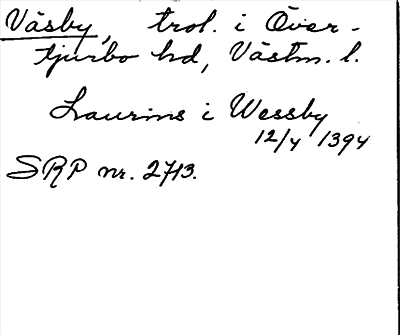 Väsby, trol. i Över-
tjurbo hd, Västm. l.
Laurins i Wessby
12/4 1394
SRP nr. 2713.